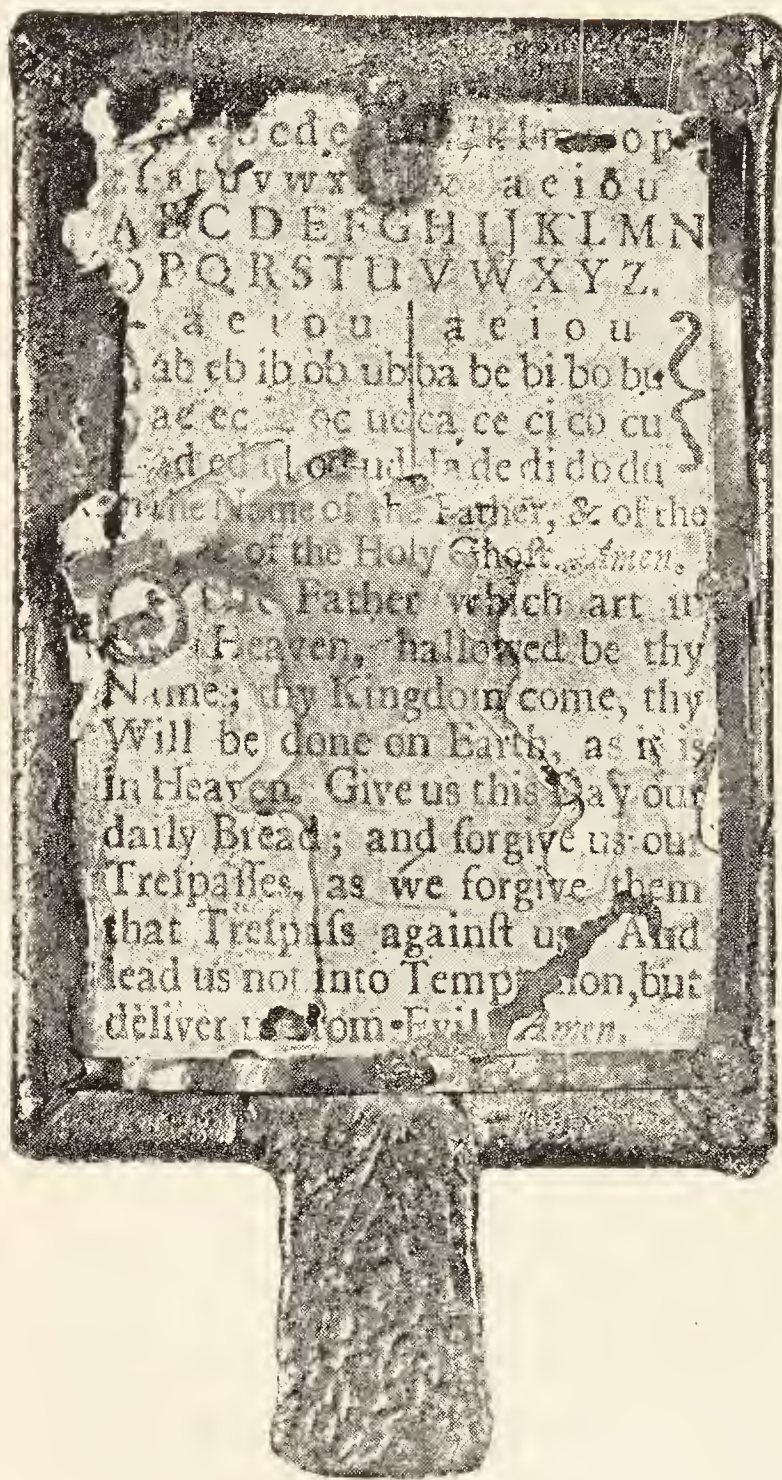 b c d e k l m o p
s t u v w x a e i o u
A B C D E F G H I J K L M N
O P Q R S T U V W X Y Z.
a e i o u a e i o u
ab eb ib ob ub ba be bi bo bu
ac ec oc uc ca ce ci co cu
ad ed id od ud da de di do du
the Name of the Father, & of the
of the Holy Ghoſt. Amen.
Father which art in
Heaven, hallowed be thy
Name; thy Kingdom come, thy
Will be done on Earth, as it is
in Heaven. Give us this Day our
daily Bread; and forgive us our
Treſpaſſes, as we forgive them
that Treſpaſs againſt us. And
lead us not into ,but
deliver Evil. Amen.